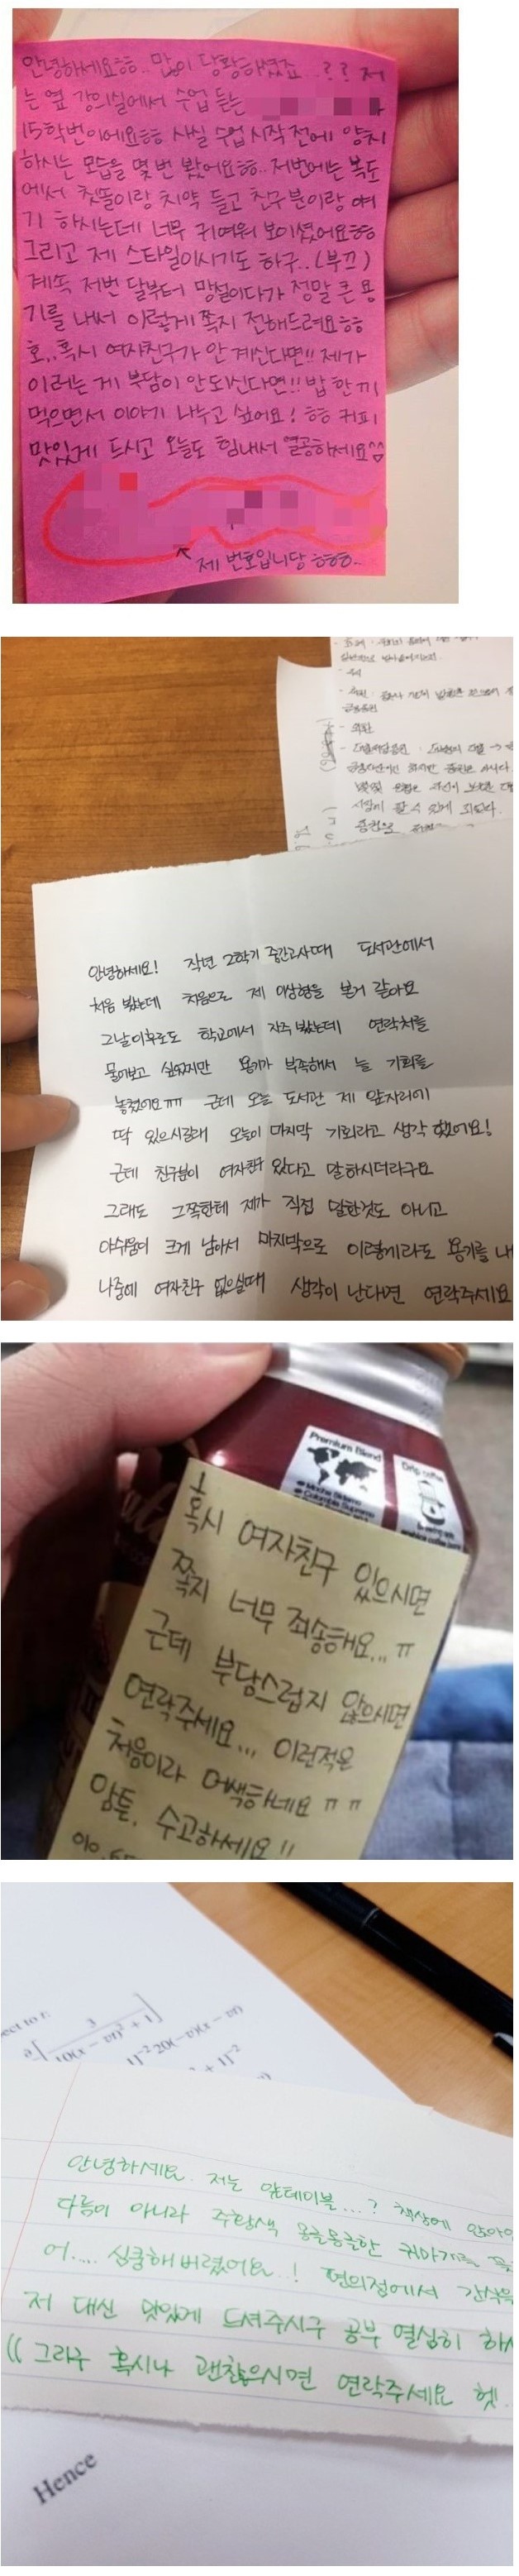 안녕하세요ㅎㅎ.. 많이 당황하셨죠..?? 저
는 옆 강의실에서 수업 듣는
15학번이에요ㅎㅎ 사실 수업 시작 전에 양치
하시는 모습을 몇 번 봤어요ㅎㅎ.. 저번에는 복도
에서 칫똘이랑 치약 들고 친구분이랑 얘
기 하시는데 너무 귀여워 보이셨어요ㅎㅎ
그리고 제 스타일이시기도 하구..(부끄)
계속 저번 달부터 망설이다가 정말 큰 용
기를 내서 이렇게 쪽지 전해드려요ㅎㅎ
호,,혹시 여자친구가 안 계신다면!! 제가
이러는 게 부담이 안되신다면!! 밥 한 끼
먹으면서 이야기 나누고 싶어요! ㅎㅎ 커피
맛있게 드시고 오늘도 힘내서 열공하세요^^
제 번호입니당 ㅎㅎㅎ..
안녕하세요! 작년 2학기 중간고사때 도서관에서
처음 봤는데 처음으로 제 이상형을 본거 같아요
그날이후로도 학교에서 자주 봤는데 연락처를
물어보고 싶었지만 용기가 부족해서 늘 기회를
놓쳤어요ㅠㅠ 근데 오늘 도서관 제 앞자리에
딱 있으시길래 오늘이 마지막 기회라고 생각 했어요!
근데 친구분이 여자친구 있다고 말하시더라구요
그래도 그쪽한테 제가 직접 말한것도 아니고
아쉬움이 크게 남아서 마지막으로 이렇게라도 용기를 내
나중에 여자친구 없으실때 생각이 난다면 연락주세요
Premium Blend
Drip coffee
혹시 여자친구 있으시면
쪽지 너무 죄송해요...ㅠ
근데 부담스럽지 않으시면
연락주세요... 이런적은
처음이라 어색하네요 ㅠㅠ
암튼. 수고하세요!!
010.65
안녕하세요. 저는 앞테이블...? 책상에 앉아
다름이 아니라 주황색 몽글몽글한 귀마개를
어.... 심쿵해버렸어요..! 편의점에서 간식을
저 대신 맛있게 드셔주시구 공부 열심히 하
((그리구 혹시나 괜찮으시면 연락주세요 헷!
Hence